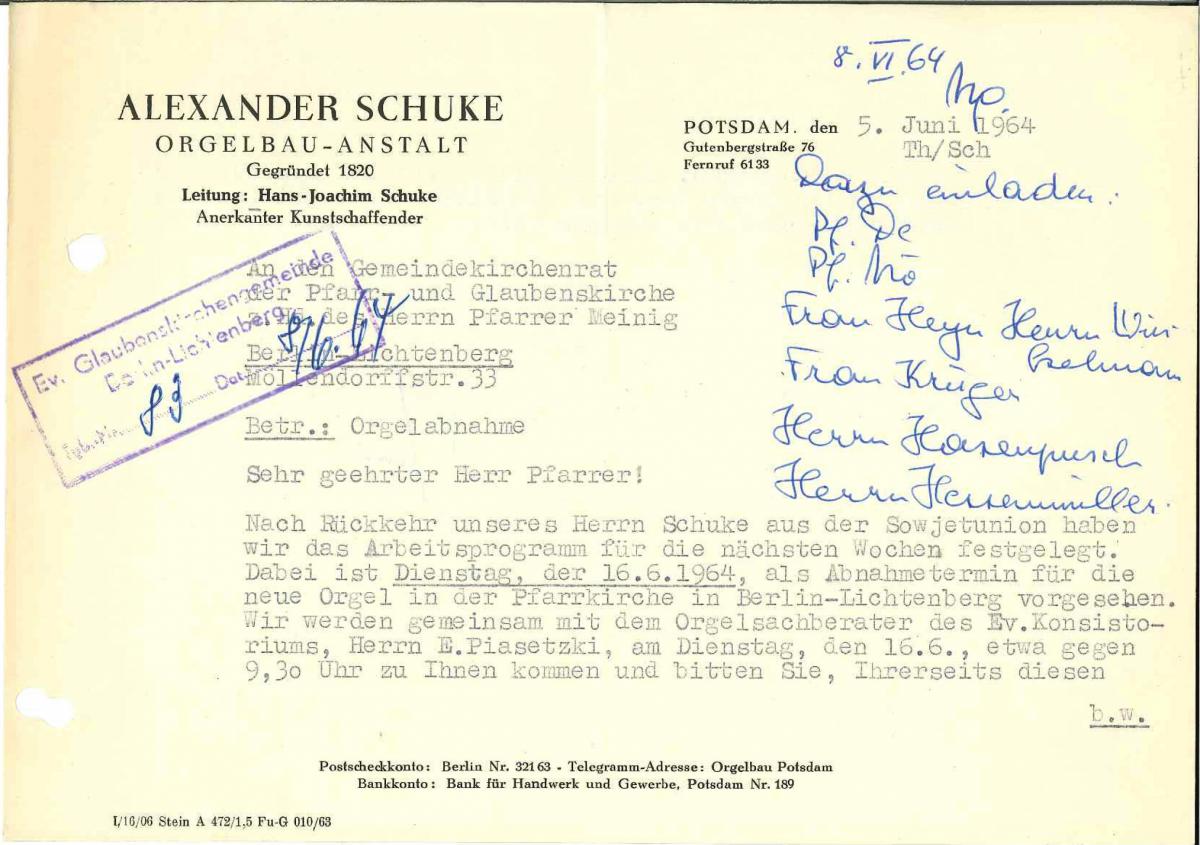 8. VI. 64
ALEXANDER SCHUKE
ORGELBAU-ANSTALT
Gegründet 1820
Leitung: Hans-Joachim Schuke
Anerkanter Kunstschaffender
POTSDAM. den 5. Juni 1964
Gutenbergstraße 76 Th/Sch
Fernruf 6133
Dazu einladen:
Pf. De
Pf. Mö
Frau Heyn Herrn Win
Frau Krüger
Herrn Hasenpusch
Herrn Hessenmüller.
Ev. Glaubenskirchengemeinde
Berlin-Lichtenberg
89 Dat. 8/6.64
An den Gemeindekirchenrat
der Pfarr- und Glaubenskirche
z.Hd des Herrn Pfarrer Meinig
Berlin-Lichtenberg
Möllendorffstr.33
Betr.: Orgelabnahme
Sehr geehrter Herr Pfarrer!
Nach Rückkehr unseres Herrn Schuke aus der Sowjetunion haben
wir das Arbeitsprogramm für die nächsten Wochen festgelegt.
Dabei ist Dienstag, der 16.6.1964, als Abnahmetermin für die
neue Orgel in der Pfarrkirche in Berlin-Lichtenberg vorgesehen.
Wir werden gemeinsam mit dem Orgelsachberater des Ev.Konsisto-
riums, Herrn E.Piasetzki, am Dienstag, den 16.6., etwa gegen
9,3o Uhr zu Ihnen kommen und bitten Sie, Ihrerseits diesen
b.w.
Postscheckkonto: Berlin Nr. 32163 - Telegramm-Adresse: Orgelbau Potsdam
Bankkonto: Bank für Handwerk und Gewerbe, Potsdam Nr. 189
I/16/06 Stein A 472/1,5 Fu-G 010/63